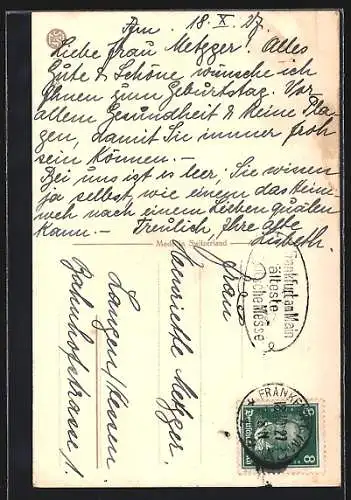 Ffm. 18. X. 27.
Liebe Frau Metzger! Alles
Gute & Schöne wünsche ich
Ihnen zum Geburtstag. Vor
allem Gesundheit & keine Pla-
gen, damit Sie immer froh
sein können. —
Bei uns ist es leer, Sie wissen
ja selbst, wie einem das Heim-
weh nach einem Lieben quälen
kann. — Treulich, Ihre alte
Lisbeth.
Made in Switzerland
Frau
Henriette Metzger.
Langen/Hessen
Bahnhofstrasse 1.
Frankfurt am Main
älteste
deutsche Messe
FRANKF
8 8